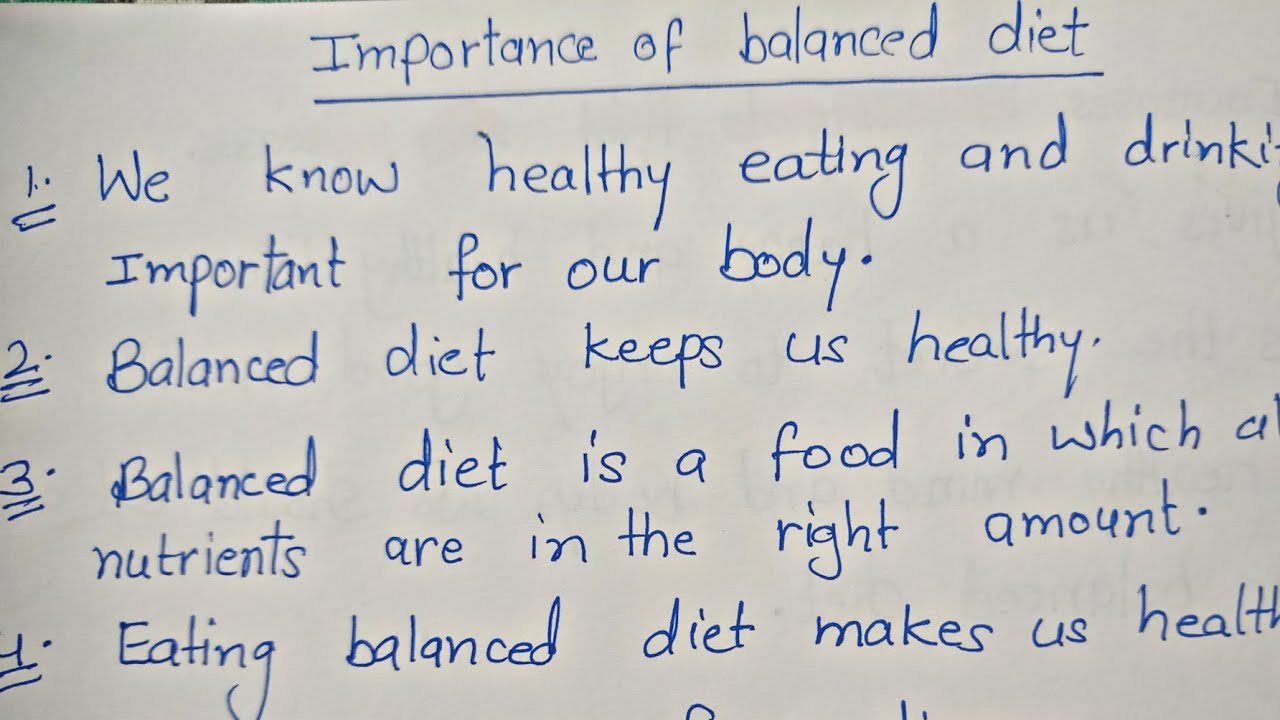 Importance of balanced diet
1. We know healthy eating and
Important for our body.
2. Balanced diet keeps us healthy.
3. Balanced diet is a food in which
nutrients are in the right amount.
4. Eating balanced diet makes us